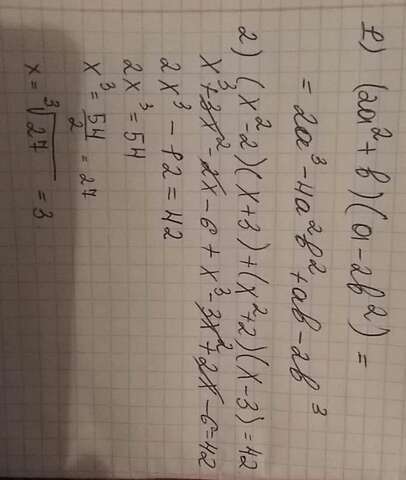 1) (2a²+b)(a-2b²)=
= 2a³-4a²b²+ab-2b³
2) (x²-2)(x+3)+(x²+2)(x-3)=42
x³+3x²-2x-6+x³-3x²+2x-6=42
2x³-12=42
2x³=54
x³=54/2=27
x=∛27=3